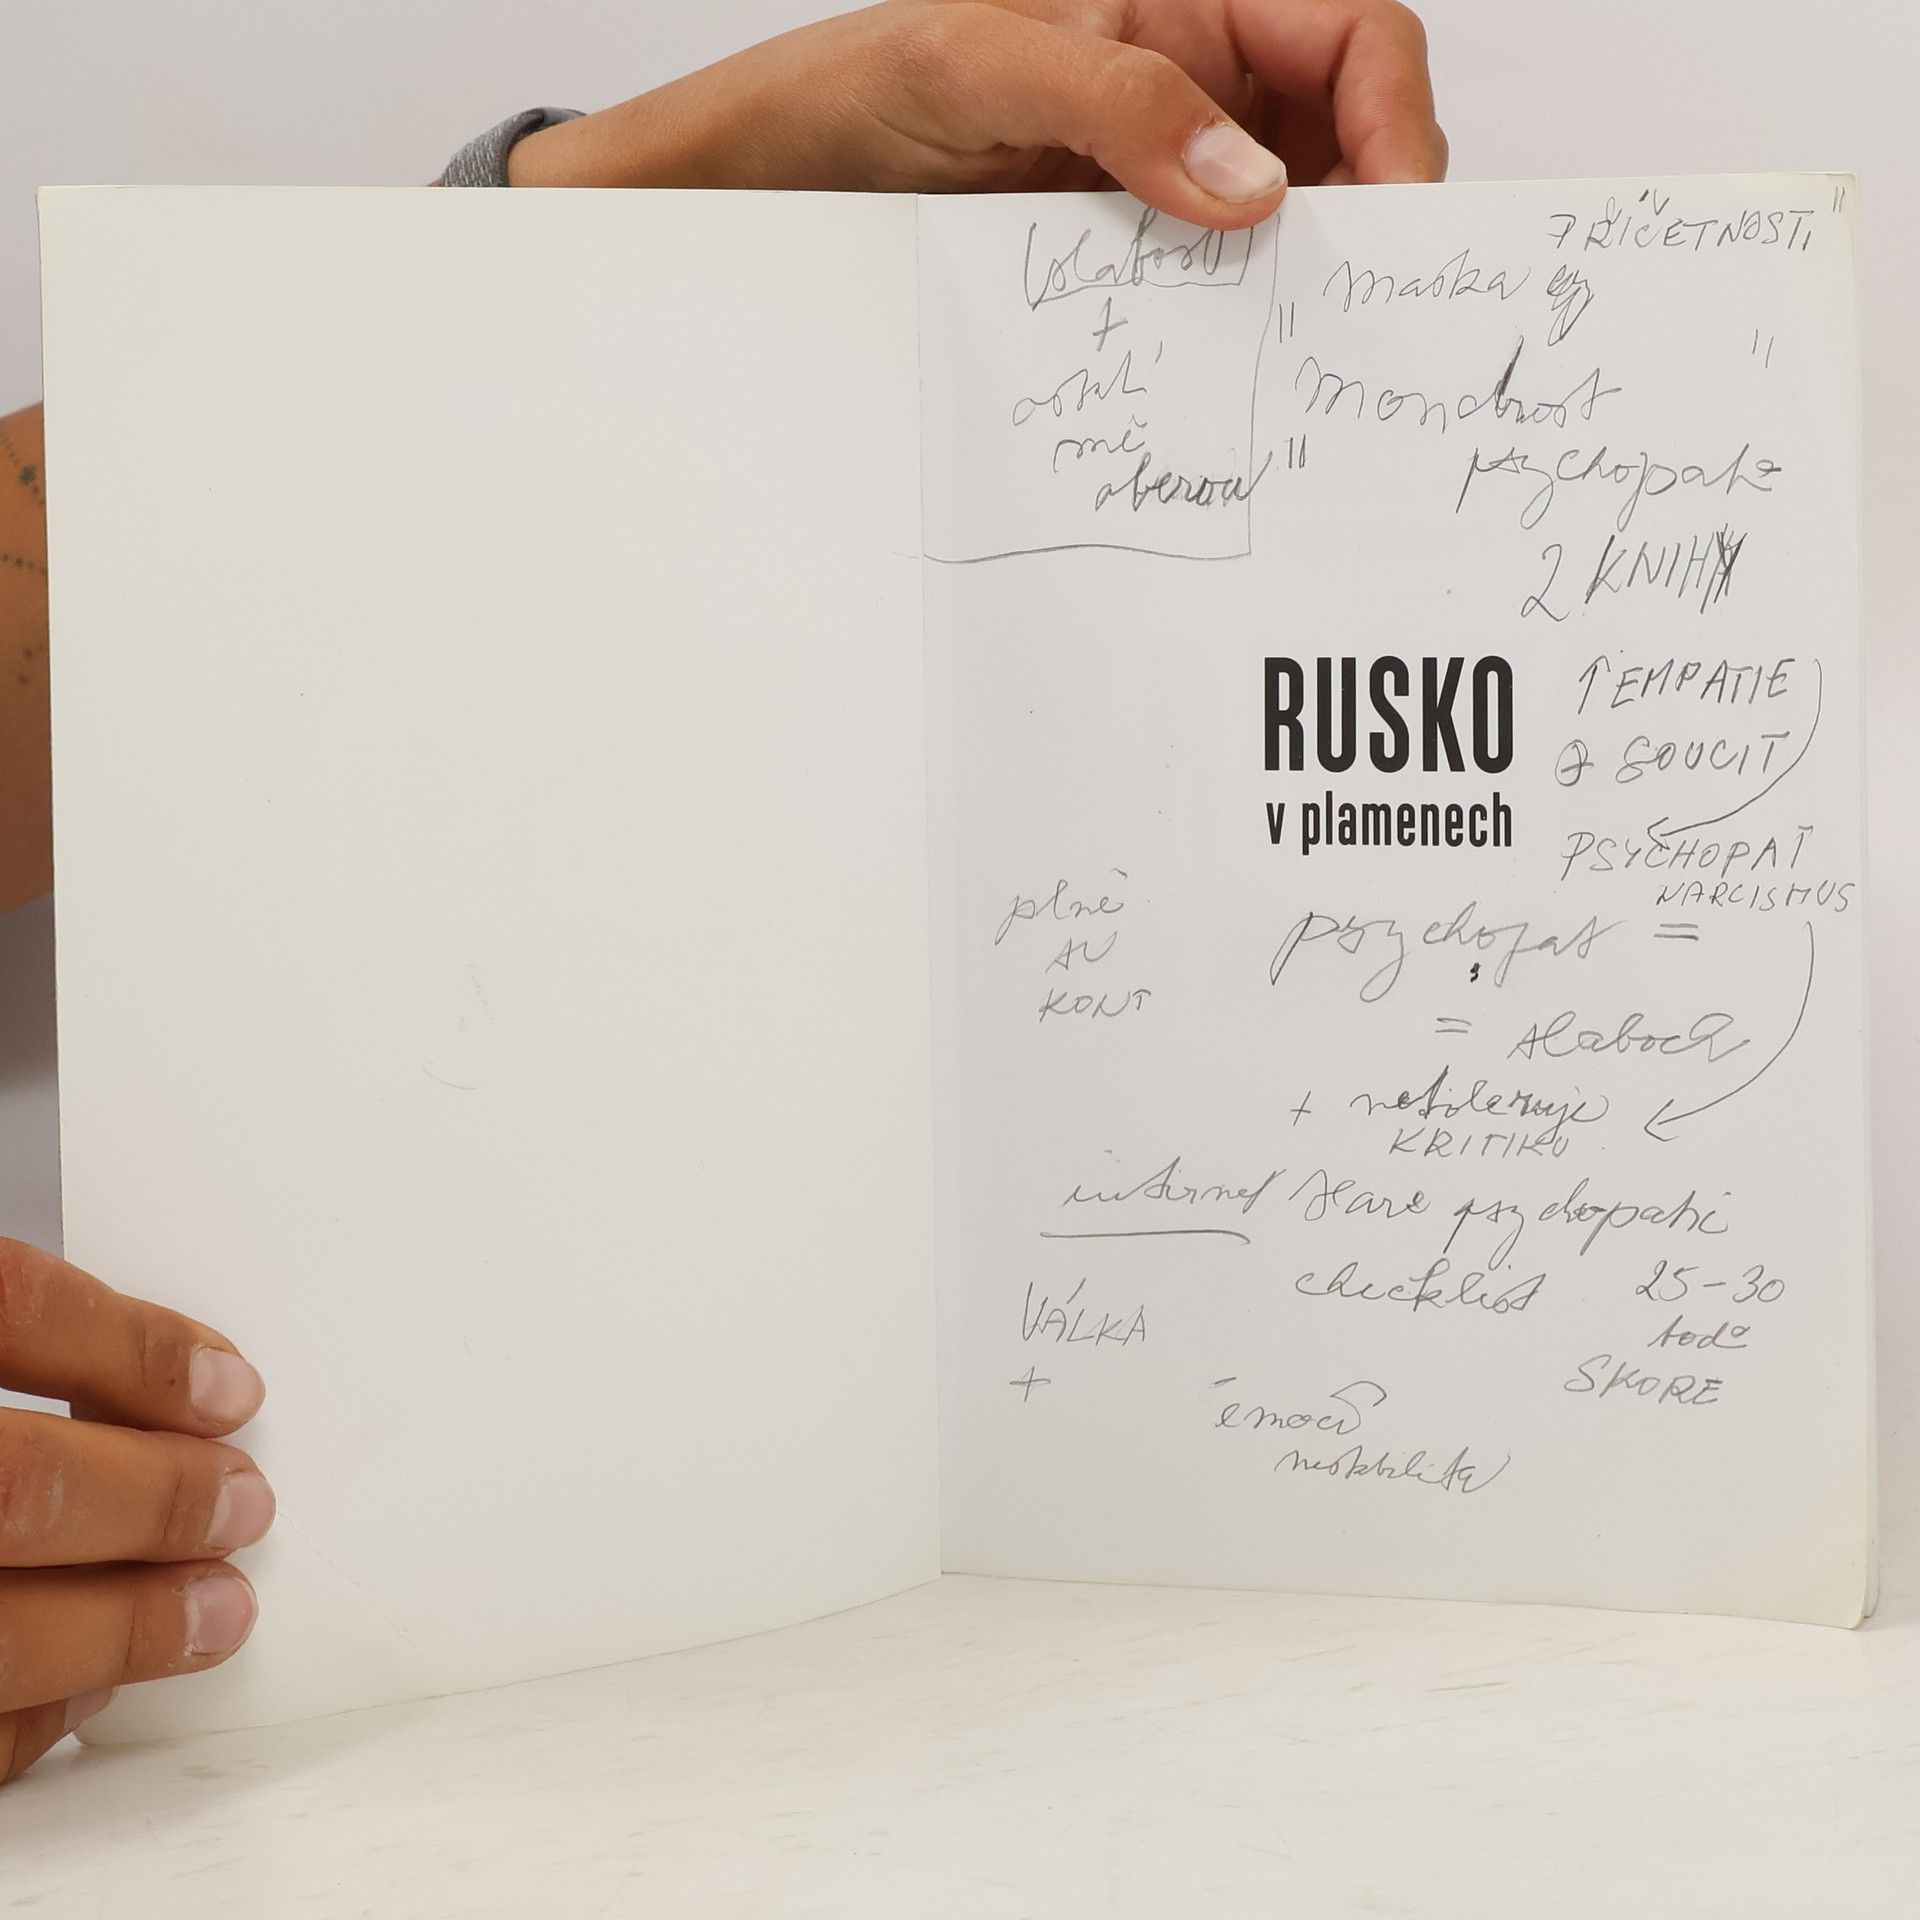 slabost
+
ostatní
mě
oberou
PŘÍČETNOSTI "
" maska
" Moudrost "
psychopata
2 KNIHY
RUSKO
v plamenech
↑ EMPATIE
A SOUCIT
PSYCHOPAT
NARCISMUS
plně
AU
KONT
psychopat =
= slaboch
+ netoleruje
KRITIKU
internet Hare psychopati
checklist 25-30
bodů
SKORE
VÁLKA
+
- emoční
nestabilita